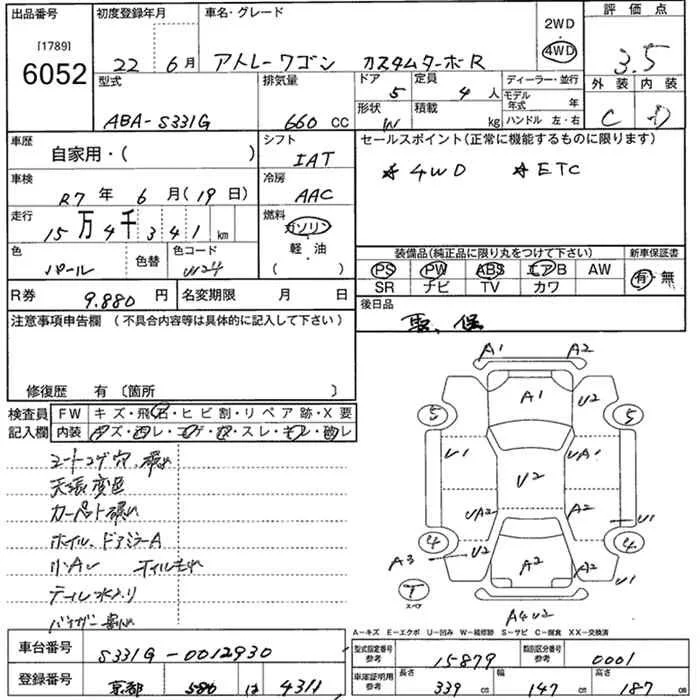 出品番号 初度登録年月 車名・グレード 2WD・4WD 評価点
[1789]
6052
22 6月 アトレーワゴン カスタムターボR 3.5
型式 排気量 ドア 定員 ディーラー・並行 外装 内装
ABA-S331G 660 CC 5 4人 モデル年式 年 C D
形状 積載 kg ハンドル 左・右
W
車歴 シフト セールスポイント(正常に機能するものに限ります)
自家用・( ) IAT
☆4WD ☆ETC
車検 冷房
R7年 6月(19日) AAC
走行 燃料
15万4千341km ガソリン・軽・油・( )
色 色替 色コード 装備品(純正品に限り丸をつけて下さい) 新車保証書
パール W24 PS PW ABS エアB AW 有・無
SR ナビ TV カワ
R券 9.880円 名変期限 月 日 後日品
注意事項申告欄(不具合内容等は具体的に記入して下さい) 取、保
修復歴 有(箇所 )
検査員記入欄 FW キズ・飛石・ヒビ割・リペア跡・X要
内装 キズ・西レ・コゲ・穴・スレ・キレ・破レ
シートコゲ穴、破れ
天張変色
カーペット破れ
ホイル、ドアミラーA
小AU ホイル
テール水入り
A1 A2
A1 U2
5 5
U1 UA1
U2
UA2 A2
U1
4 U2 A2 4
A3 A2 U1
T
スペア
A4U2
A-キズ E-エクボ U-凹み W-補修跡 S-サビ C-腐食 XX-交換済
車台番号 S331G-0012930
型式指定番号 参考 15879 類別区分番号 参考 0001
登録番号 京都 580 4311
車庫証明用 参考 長さ 339cm 幅 147cm 高さ 187cm